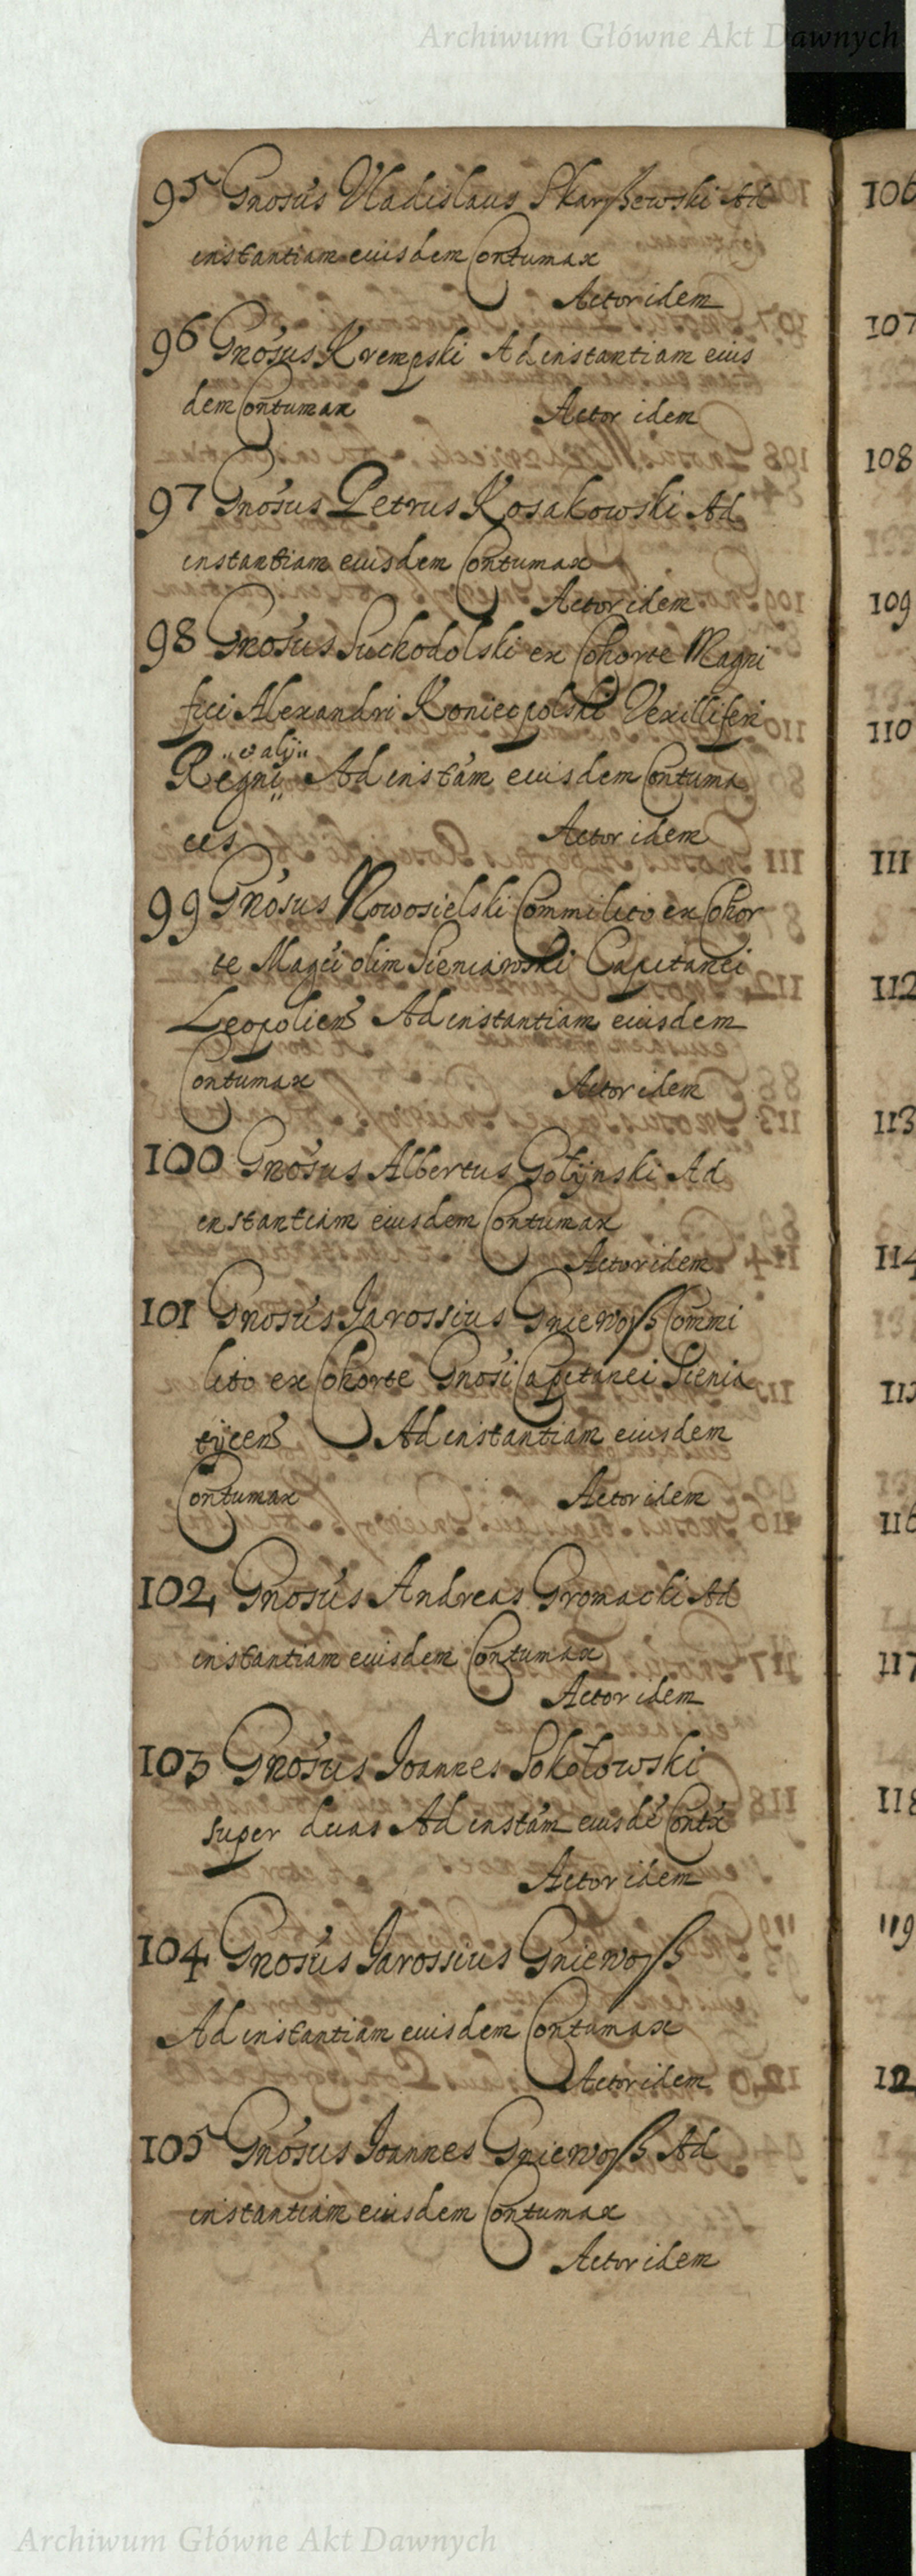 Archiwum Główne Akt Dawnych
95 Gnosus Vladislaus Skarßewski Ad
instantiam eiusdem Contumax
Actor idem
96 Gnosus Krempski Ad instantiam eius
dem Contumax Actor idem
97 Gnosus Petrus Kosakowski Ad
instantiam eiusdem Contumax
Actor idem
98 Gnosus Suchodolski ex Cohorte Magni
fici Alexandri Koniecpolski Vexilliferi
,,et alij,,
Regni,, Ad instãm eiusdem Contuma
ces Actor idem
99 Gnosus Nowosielski Commilito ex Cohor
te Magci olim Sieniawski Capitanei
Leopolien Ad instantiam eiusdem
Contumax Actor idem
100 Gnosus Albertus Gołÿnski Ad
instantiam eiusdem Contumax
Actor idem
101 Gnosus Jarossius Gniewoß Commi
lito ex Cohorte Gnosi Capitanei Sienia
tÿcen Ad instantiam eiusdem
Contumax Actor idem
102 Gnosus Andreas Gromacki Ad
instantiam eiusdem Contumax
Actor idem
103 Gnosus Joannes Sokołowski
super duas Ad instãm eiusdē Contx
Actor idem
104 Gnosus Jarossius Gniewoß
Ad instantiam eiusdem Contumax
Actor idem
105 Gnosus Joannes Gniewoß Ad
instantiam eiusdem Contumax
Actor idem
106
107
108
109
110
111
112
113
114
115
116
117
118
119
12
Archiwum Główne Akt Dawnych